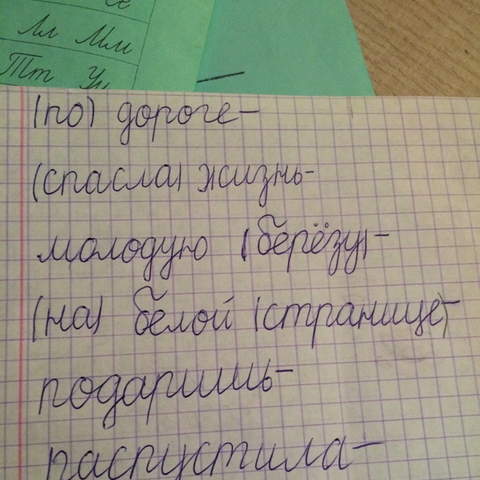 Лл Мм
Тт Уу
(по) дороге–
(спасла) жизнь–
молодую (берёзу)–
(на) белой (странице)–
подаришь–
распустила–